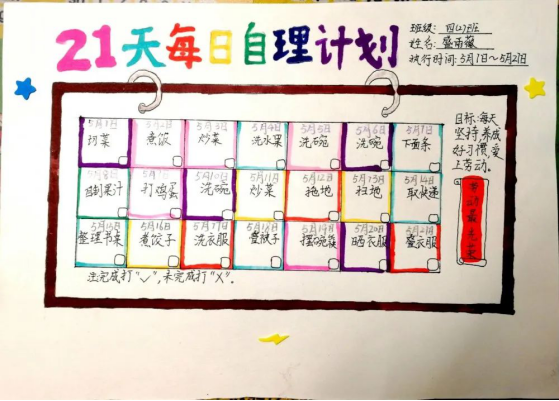 21天每日自理计划
班级: 四(2)班
姓名: 盛雨薇
执行时间: 5月1日~5月21日
5月1日 5月2日 5月3日 5月4日 5月5日 5月6日 5月7日
择菜 煮饭 炒菜 洗水果 洗碗 洗碗 下面条
5月8日 5月9日 5月10日 5月11日 5月12日 5月13日 5月14日
自制果汁 打鸡蛋 洗碗 炒菜 拖地 扫地 取快递
5月15日 5月16日 5月17日 5月18日 5月19日 5月20日 5月21日
整理书桌 煮饺子 洗衣服 叠被子 摆碗筷 晒衣服 叠衣服
目标: 每天
坚持,养成
好习惯,爱
上劳动。
劳动最光荣
注完成打"√",未完成打"X".